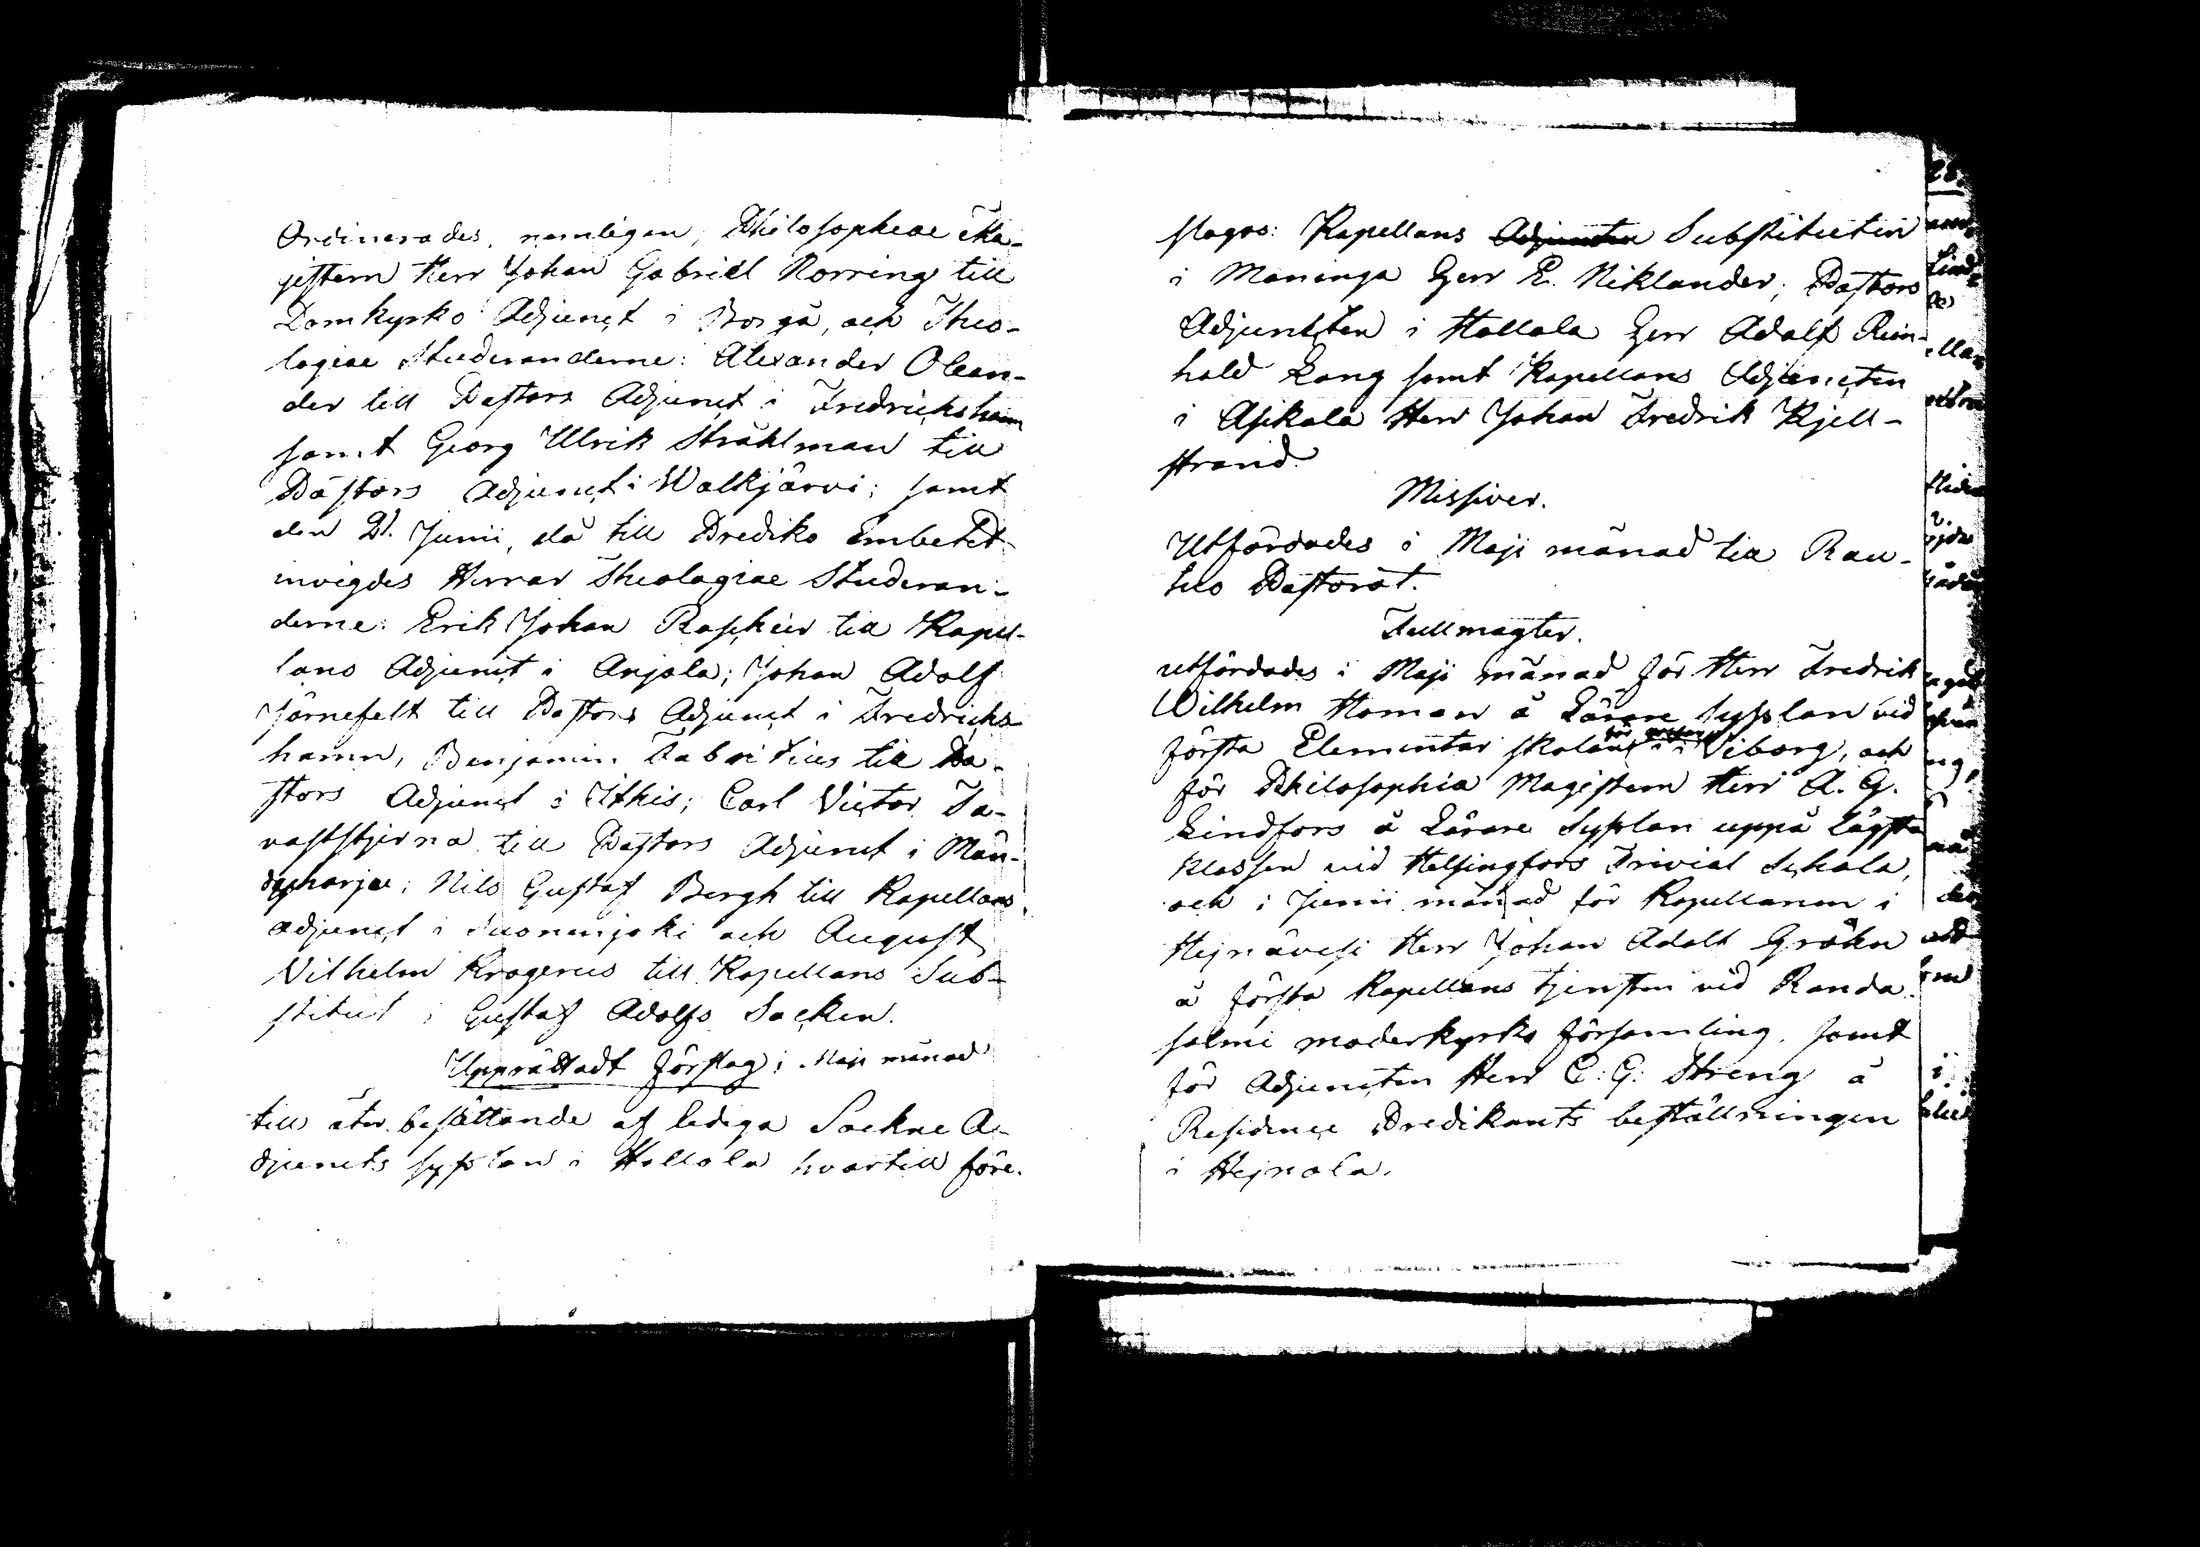 Ordinerades, nemligen, Philosopheae Ma-
gistern Herr Johan Gabriel Rorring till
Domkyrko Adjunct i Borgå, och Theo-
logiae Studeranderne: Alexander Olean-
der till Pastors Adjunct i Fredrichshamn
samt Georg Ulrik Stråhlman till
Pastors Adjunct i Walkjärvi; samt
den 21. Junii, då till Prediko Embetet
invigdes Herrar Theologiae Studeran-
derne: Erik Johan Raschier till Kapel-
lans Adjunct i Anjala; Johan Adolf
Järnefelt till Pastors Adjunct i Fredrichs
hamn, Benjamin Fabritius till Pa-
stors Adjunct i Ithis; Carl Victor Ta-
vaststjerna till Pastors Adjunct i Män-
dyharju; Nils Gustaf Bergh till Kapellans
adjunct i Suonenjoki och August
Vilhelm Krogerus till Kapellans Sub-
stitut i Gustaf Adolfs Socken.
Upprättadt förslag i Maji månad
till åter besättande af lediga Sockne A-
djuncts sysslan i Hollola hvartill före-
slagos: Kapellans Adjuncten Substituten
i Maninga Herr E. Niklander; Pastors
Adjuncten i Hollola Herr Adolf Rein-
hold Lang samt Kapellans Adjuncten
i Asikala Herr Johan Fredrik Kjell-
strand.
Missiver.
Utfärdades i Maji månad till Rau-
tus Pastorat.
Fullmagter.
utfärdades i Maji månad för Herr Fredrik
Wilhelm Homan å Lärare Sysslan vid
för
första Elementar skolan i Viborg, och
för Philosophia Magistern Herr A. G.
Lindfors å Lärare Sysslan uppå lägsta
klassen vid Helsingfors Trivial Schola,
och i Junii månad för Kapellanen i
Hejnävesi Herr Johan Adolf Gråhn
å första Kapellans tjensten vid Randa-
salmi moderkyrko församling, samt
för Adjuncten Herr C. G. Streng å
Residence Predikants beställningen
i Hejnola.